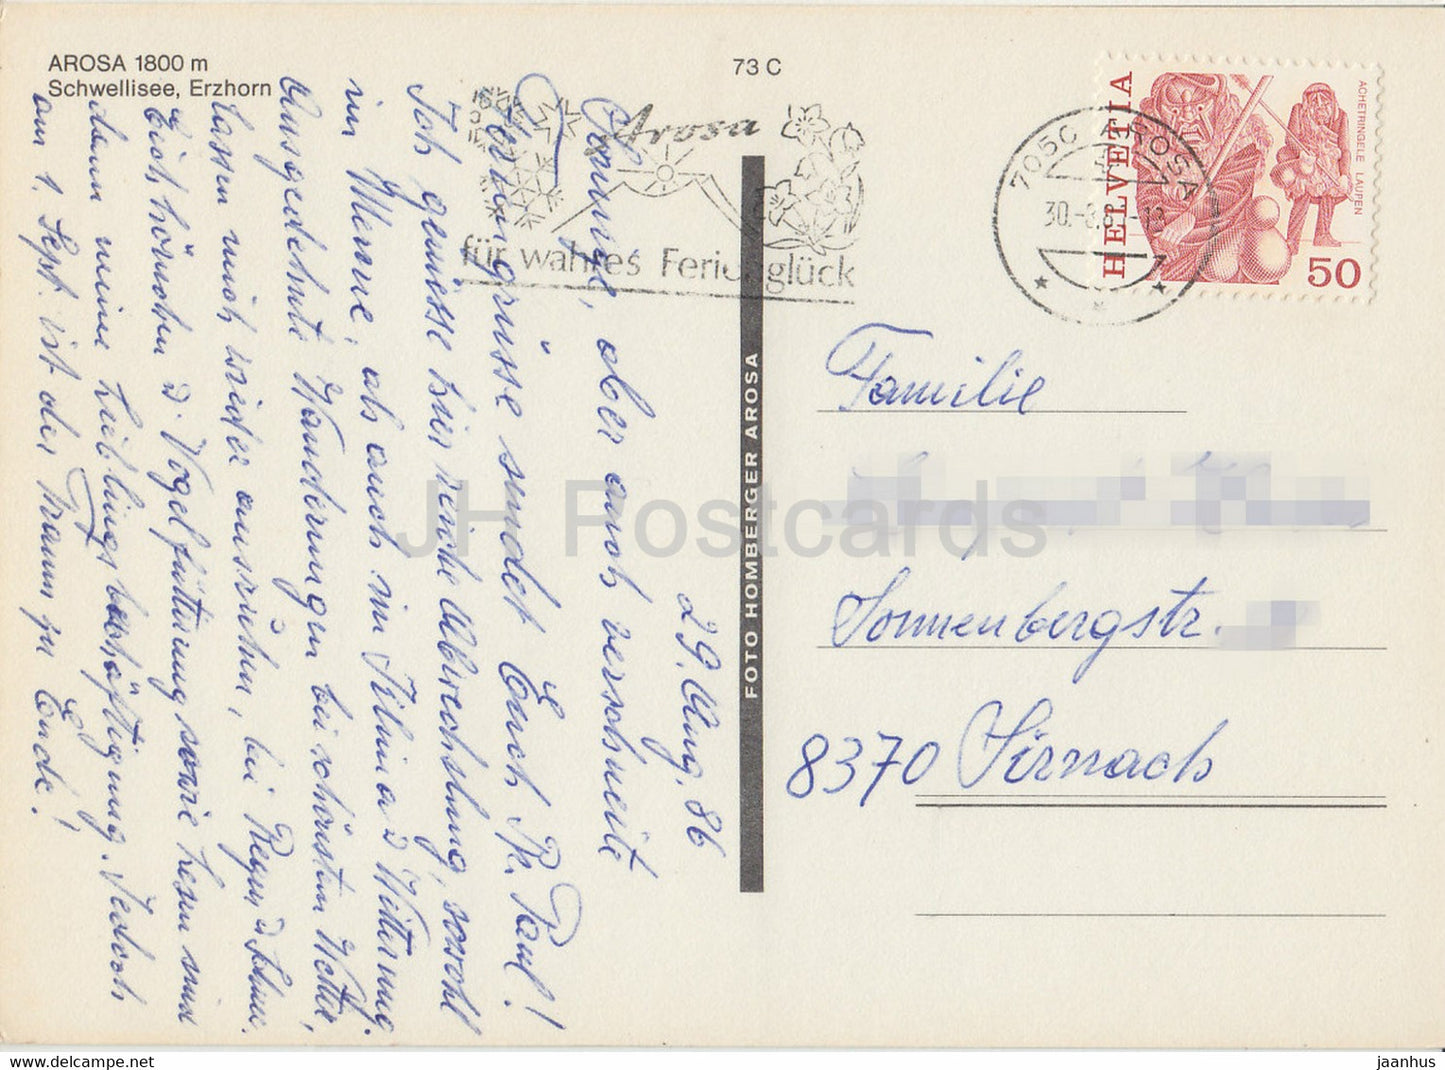 AROSA 1800 m
Schwellisee, Erzhorn
73 C
Arosa
für wahres Ferienglück
7050 AROSA
30.-8.8
HELVETIA
ACHETRINGELE LAUPEN
50
FOTO HOMBERGER AROSA
JH Postcards
29. Aug. 86
Sonnige, aber auch verschneite
Feriengrüsse sendet Euch Paul!
Ich geniesse hier reiche Abwechslung, sowohl
im Menue, als auch im Klima & Witterung.
Ausgedehnte Wanderungen bei schönstem Wetter,
lassen mich wieder ausruhen, bei Regen & Schnee.
Eichhörnchen & Vogelfütterung sowie Lesen sind
dann meine Lieblingsbeschäftigung. Jedoch
am 1. Sept. ist der Traum zu Ende!
Familie
Sonnenbergstr.
8370 Sirnach
jaanhus
www.delcampe.net